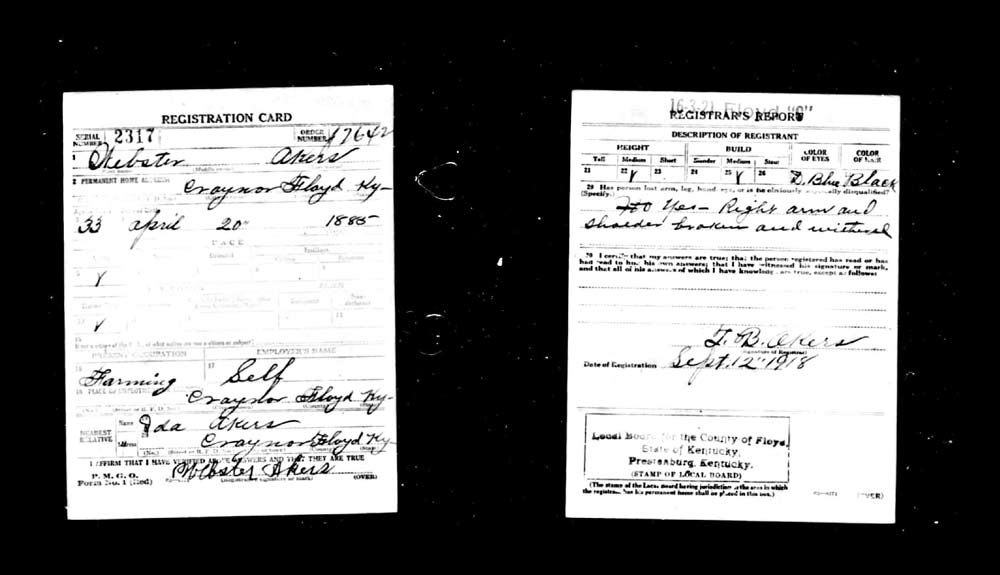 REGISTRATION CARD
SERIAL NUMBER 2317 ORDER NUMBER 17642
1 Webster Akers
2 PERMANENT HOME ADDRESS
Craynor Floyd Ky-
33 April 20" 1885
RACE
If not a citizen of the U. S., of what nation are you a citizen or subject
PRESENT OCCUPATION EMPLOYER'S NAME
16 17
Farming Self
18 PLACE OF EMPLOYMENT
Craynor Floyd Ky-
NEAREST RELATIVE Name Ida Akers
Address Craynor Floyd Ky
I AFFIRM THAT I HAVE VERIFIED ABOVE ANSWERS AND THAT THEY ARE TRUE
P. M. G. O.
Form No. 1 (Red) Webster Akers
(Registrant's signature or mark) (OVER)
16-3-21 Floyd "C"
REGISTRAR'S REPORT
DESCRIPTION OF REGISTRANT
HEIGHT BUILD COLOR OF EYES COLOR OF HAIR
Tall Medium Short Slender Medium Stout
21 22 √ 23 24 25 √ 26 D. Blue Black
29 Has person lost arm, leg, hand, eye, or is he obviously physically disqualified?
(Specify.)
No Yes- Right arm and
shoulder broken and withered
30 I certify that my answers are true; that the person registered has read or has
had read to him his own answers; that I have witnessed his signature or mark,
and that all of his answers of which I have knowledge are true, except as follows:
T. B. Akers
(Signature of Registrar)
Date of Registration Sept. 12" 1918
Local Board for the County of Floyd,
State of Kentucky,
Prestonsburg, Kentucky.
(STAMP OF LOCAL BOARD)
(The stamp of the Local Board having jurisdiction of the area in which
the registrant has his permanent home shall be placed in this box.)
(OVER)